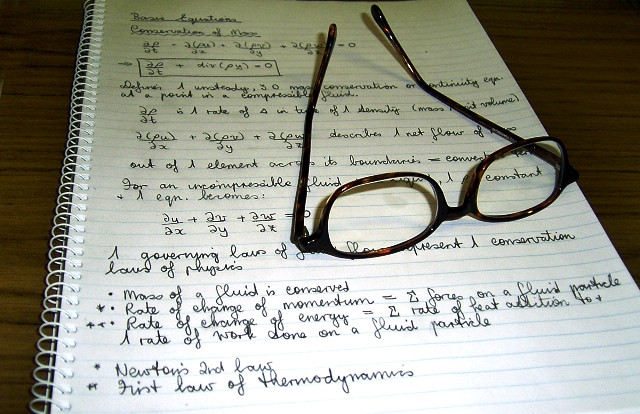 Basic Equations
Conservation of Mass
∂ρ/∂t + ∂(ρu)/∂x + ∂(ρv)/∂y + ∂(ρw)/∂z = 0
⇒ ∂ρ/∂t + div(ρu) = 0
Defines 1 unsteady, 3D mass conservation or continuity eqn.
at a point in a compressible fluid.
∂ρ/∂t is 1 rate of Δ in time of 1 density (mass volume)
∂(ρu)/∂x + ∂(ρv)/∂y + ∂(ρw) describes 1 net flow of mass
out of 1 element across its boundaries =
For an incompressible fluid 1 constant
+ 1 eqn. becomes:
∂u/∂x + ∂v/∂y + ∂w/∂z = 0
1 governing laws of flow represent 1 conservation
laws of physics
• Mass of a fluid is conserved
*• Rate of change of momentum = Σ forces on a fluid particle
**• Rate of change of energy = Σ rate of heat addition to +
1 rate of work done on a fluid particle
* Newton's 2nd law
** First law of thermodynamics